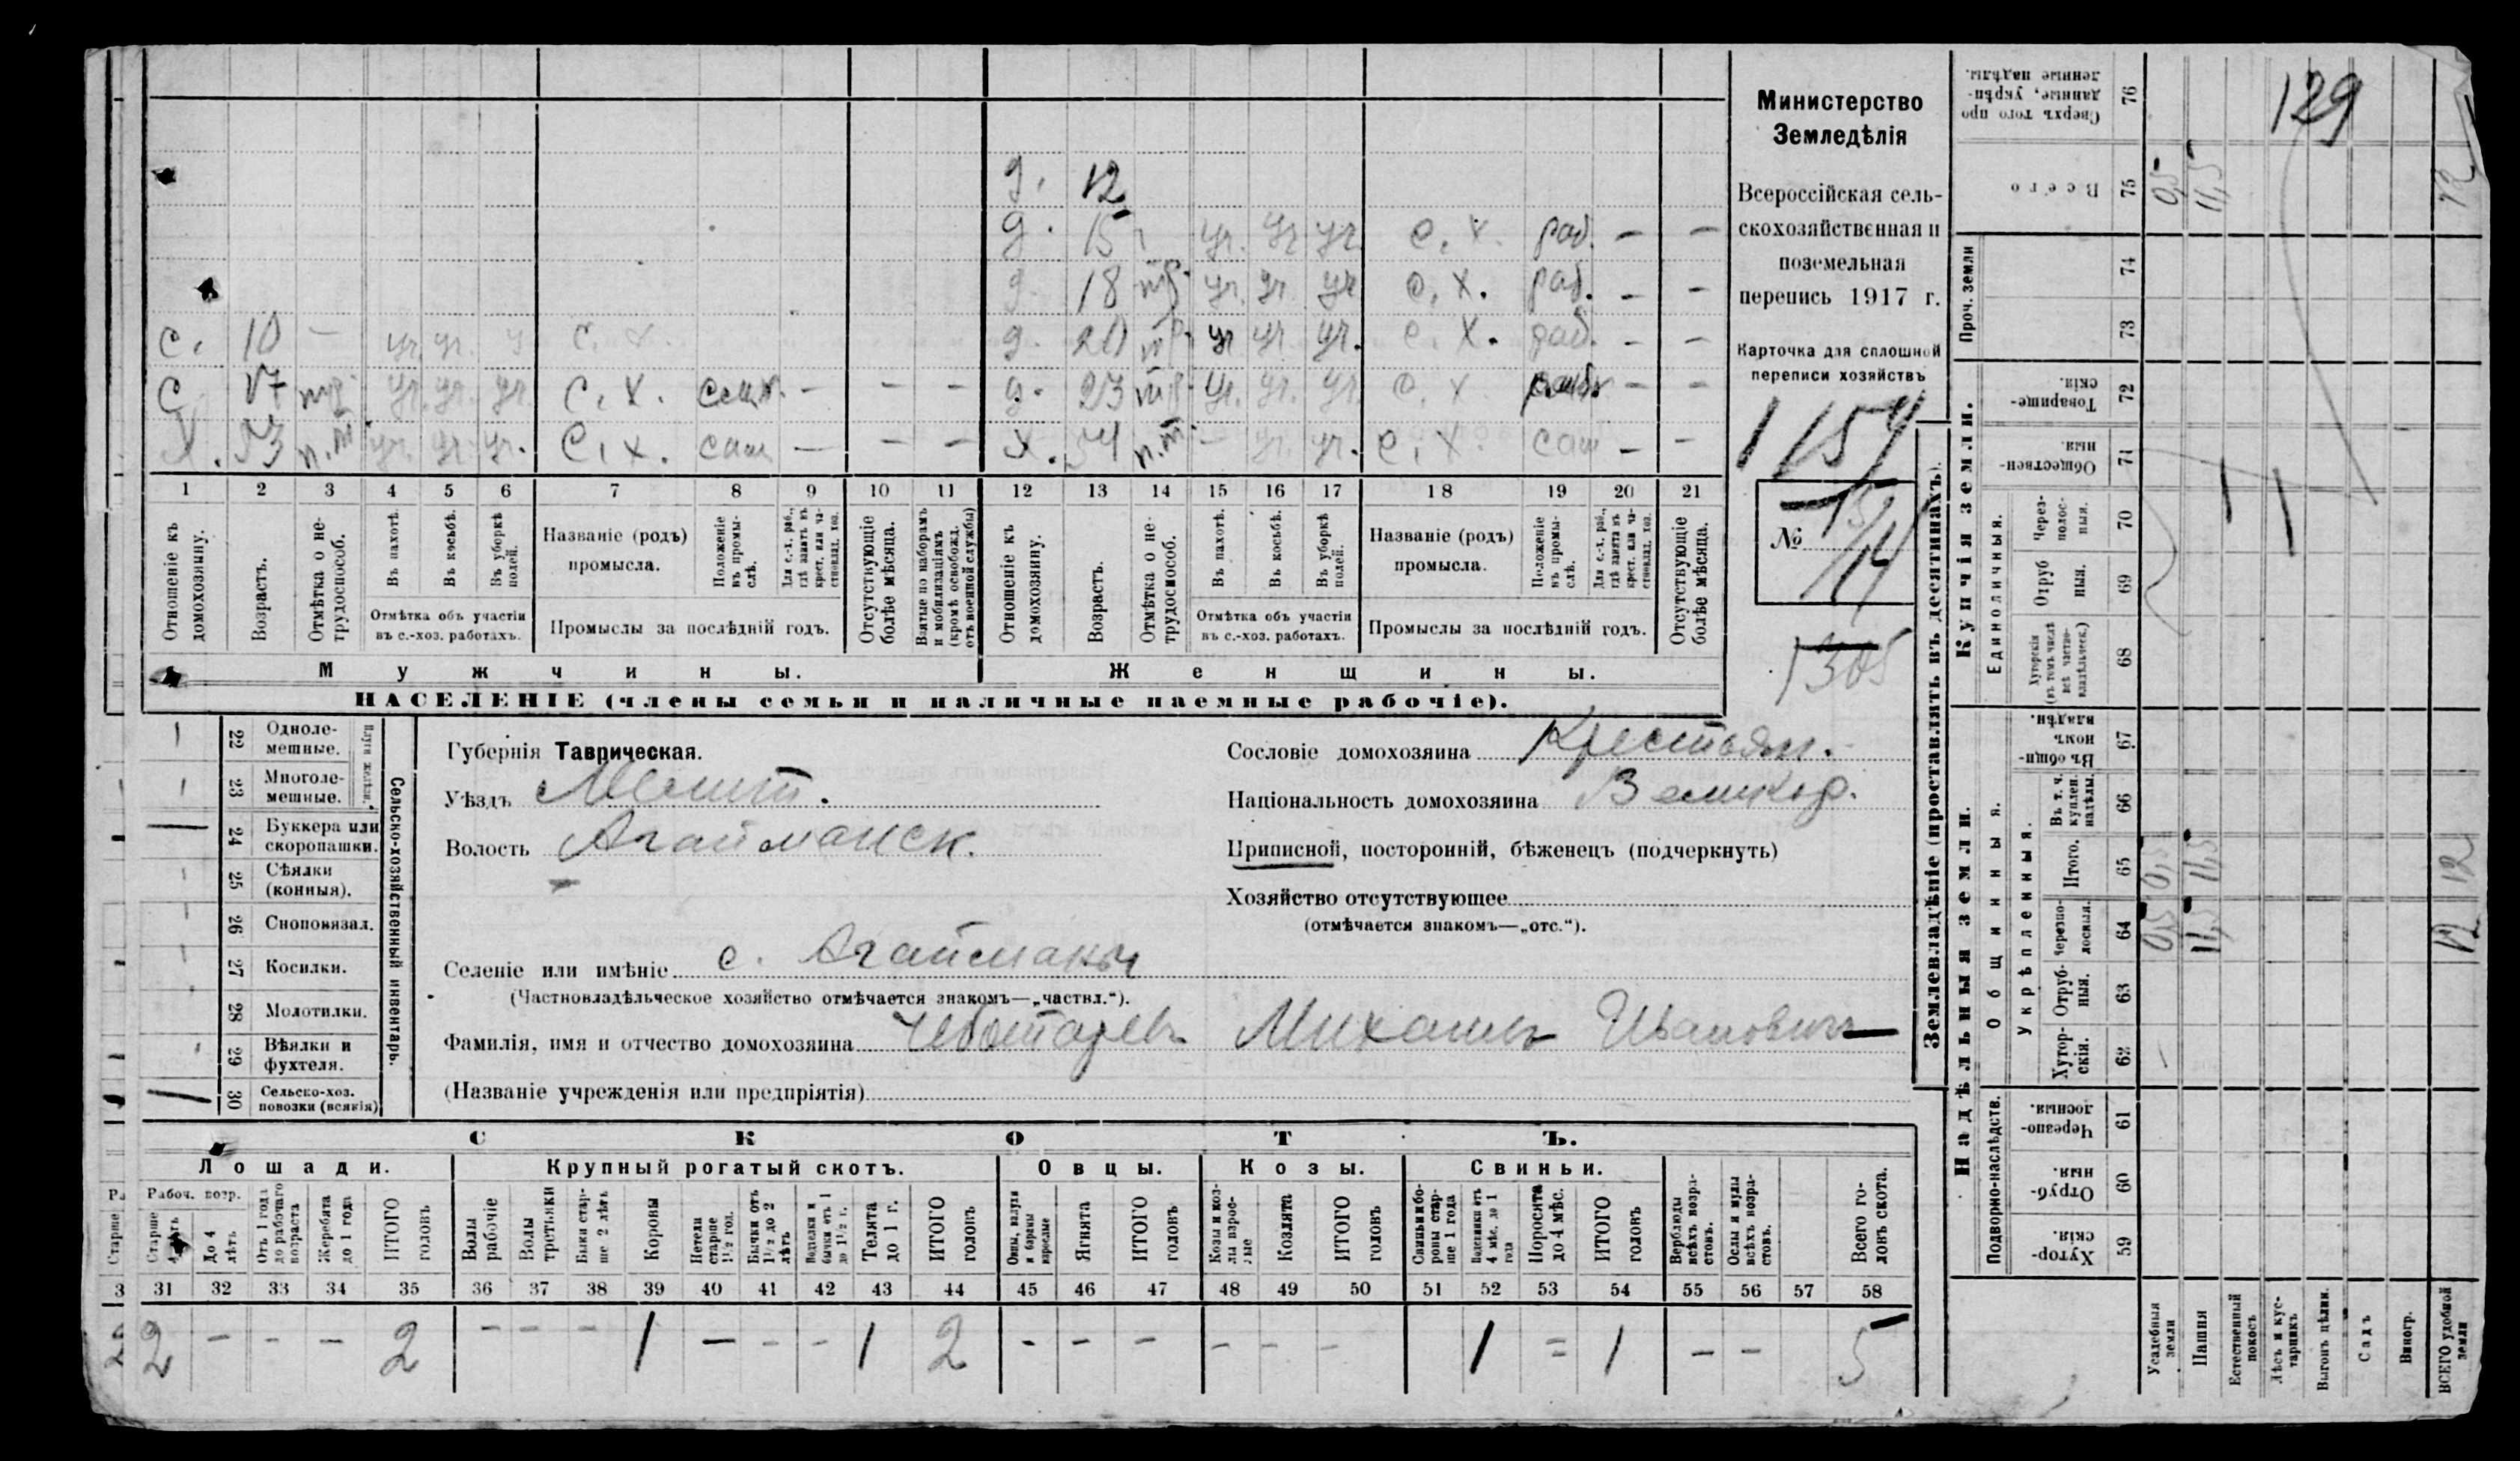 129
Министерство
Земледѣлія
Всероссійская сель-
скохозяйственная и
поземельная
перепись 1917 г.
Карточка для сплошной
переписи хозяйствъ
1154
№
14
1305
д. 12
д. 15 уч. уч уч с. х. раб. — —
д. 18 тр. уч. уч уч с. х. раб. — —
с. 10 — уч. уч. у с. х. д. 20 тр. уч уч уч. с. х. раб. — —
с 17 тр. уч. уч. уч. с. х. сам. — — — д. 23 тр. уч. уч. уч. с. х. — —
х. 53 п.т. уч. уч. уч. с. х. сам — — — х. 54 п.т. — уч. уч. с. х. сам — —
1 2 3 4 5 6 7 8 9 10 11 12 13 14 15 16 17 18 19 20 21
Отношеніе къ домохозяину.
Возрастъ.
Отмѣтка о не-трудоспособ.
Въ пахотѣ.
Въ косьбѣ.
Въ уборкѣ полей.
Отмѣтка объ участіи въ с.-хоз. работахъ.
Названіе (родъ) промысла.
Положеніе въ промы-слѣ.
Для с.-х. раб., гдѣ занятъ въ крест. или ча-стновлад. хоз.
Промыслы за послѣдній годъ.
Отсутствующіе болѣе мѣсяца.
Взятые по наборамъ и мобилизаціямъ (кромѣ освобожд. отъ военной службы)
Отношеніе къ домохозяину.
Возрастъ.
Отмѣтка о не-трудоспособ.
Въ пахотѣ.
Въ косьбѣ.
Въ уборкѣ полей.
Отмѣтка объ участіи въ с.-хоз. работахъ.
Названіе (родъ) промысла.
Положеніе въ промы-слѣ.
Для с.-х. раб., гдѣ занята въ крест. или ча-стновлад. хоз.
Промыслы за послѣдній годъ.
Отсутствующіе болѣе мѣсяца.
Мужчины. Женщины.
НАСЕЛЕНІЕ (члены семьи и наличные наемные рабочіе).
22 Одноле-мешные.
23 Многоле-мешные.
Плуги желѣзн.
24 Буккера или скоропашки.
25 Сѣялки (конныя).
26 Сноповязал.
27 Косилки.
28 Молотилки.
29 Вѣялки и фухтеля.
30 Сельско-хоз. повозки (всякія)
Сельско-хозяйственный инвентарь.
Губернія Таврическая.
Уѣздъ Мелит.
Волость Агайманск.
Селеніе или имѣніе с. Агайманы
(Частновладѣльческое хозяйство отмѣчается знакомъ—„частвл.“).
Фамилія, имя и отчество домохозяина Чеботаревъ Михаилъ Ивановичъ
(Названіе учрежденія или предпріятія)
Сословіе домохозяина Крестьян.
Національность домохозяина Великор.
Приписной, посторонній, бѣженецъ (подчеркнуть)
Хозяйство отсутствующее
(отмѣчается знакомъ—„отс.“).
СКОТЪ.
Лошади. Крупный рогатый скотъ. Овцы. Козы. Свиньи.
Рабоч. возр.
Старше 4 лѣтъ
До 4 лѣтъ
Отъ 1 года до рабочаго возраста
Жеребята до 1 года
ИТОГО головъ
Волы рабочіе
Волы третьяки
Быки стар-ше 2 лѣтъ
Коровы
Нетели старше 1½ год.
Бычки отъ 1½ до 2 лѣтъ
Водзлки и бычки отъ 1 до 1½ г.
Телята до 1 г.
ИТОГО головъ
Овцы, валухи и бараны взрослые
Ягнята
ИТОГО головъ
Козы и коз-лы взрос-лые
Козлята
ИТОГО головъ
Свиньи и бо-ровы стар-ше 1 года
Подсвинки отъ 4 мѣс. до 1 года
Поросята до 4 мѣс.
ИТОГО головъ
Верблюды всѣхъ возра-стовъ.
Ослы и мулы всѣхъ возра-стовъ.
Всего го-ловъ скота.
31 32 33 34 35 36 37 38 39 40 41 42 43 44 45 46 47 48 49 50 51 52 53 54 55 56 57 58
2 — — — 2 — — — 1 — — — 1 2 — — — — — — 1 = 1 — — 5
Землевладѣніе (проставлять въ десятинахъ).
Надѣльныя земли. Купчія земли.
Проч. земли
Подворно-наслѣдств.
Общинныя.
Укрѣпленныя.
Единоличныя.
Сверхъ того про данные, укрѣп-ленные надѣлы. 76
Всего 75 0,5 11,5 12
74
73
Товарище-скія. 72
Обществен-ныя. 71
Через-полос-ныя. 70
Отруб ныя. 69
Хуторскія (въ томъ числѣ всѣ частно-владѣльческ.) 68
Въ общин-номъ владѣн. 67
Въ т. ч. куплен. надѣлы. 66
Итого. 65 0,5 11,5 12
Черезпо-лосныя. 64 0,5 11,5 12
Отруб-ныя. 63
Хутор-скія. 62
Черезпо-лосныя. 61
Отруб-ныя. 60
Хутор-скія. 59
Усадебныя земли
Пашня
Естественный покосъ
Лѣсъ и кус-тарникъ
Выгонъ цѣлин.
Садъ
Виногр.
ВСЕГО удобной земли